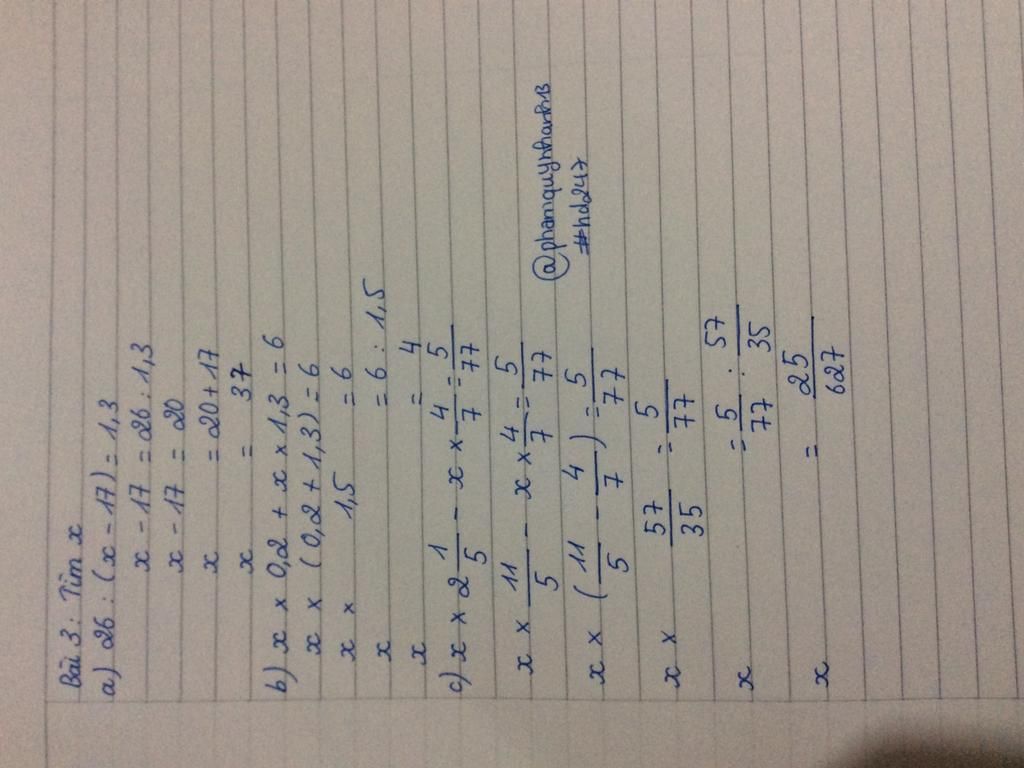 Bài 3: Tìm x
a) 26 : (x - 17) = 1,3
x - 17 = 26 : 1,3
x - 17 = 20
x = 20 + 17
x = 37
b) x × 0,2 + x × 1,3 = 6
x × (0,2 + 1,3) = 6
x × 1,5 = 6
x = 6 : 1,5
x = 4
c) x × 2 1/5 - x × 4/7 = 5/77
x × 11/5 - x × 4/7 = 5/77
x × (11/5 - 4/7) = 5/77
x × 57/35 = 5/77
x = 5/77 : 57/35
x = 25/627
#hd247